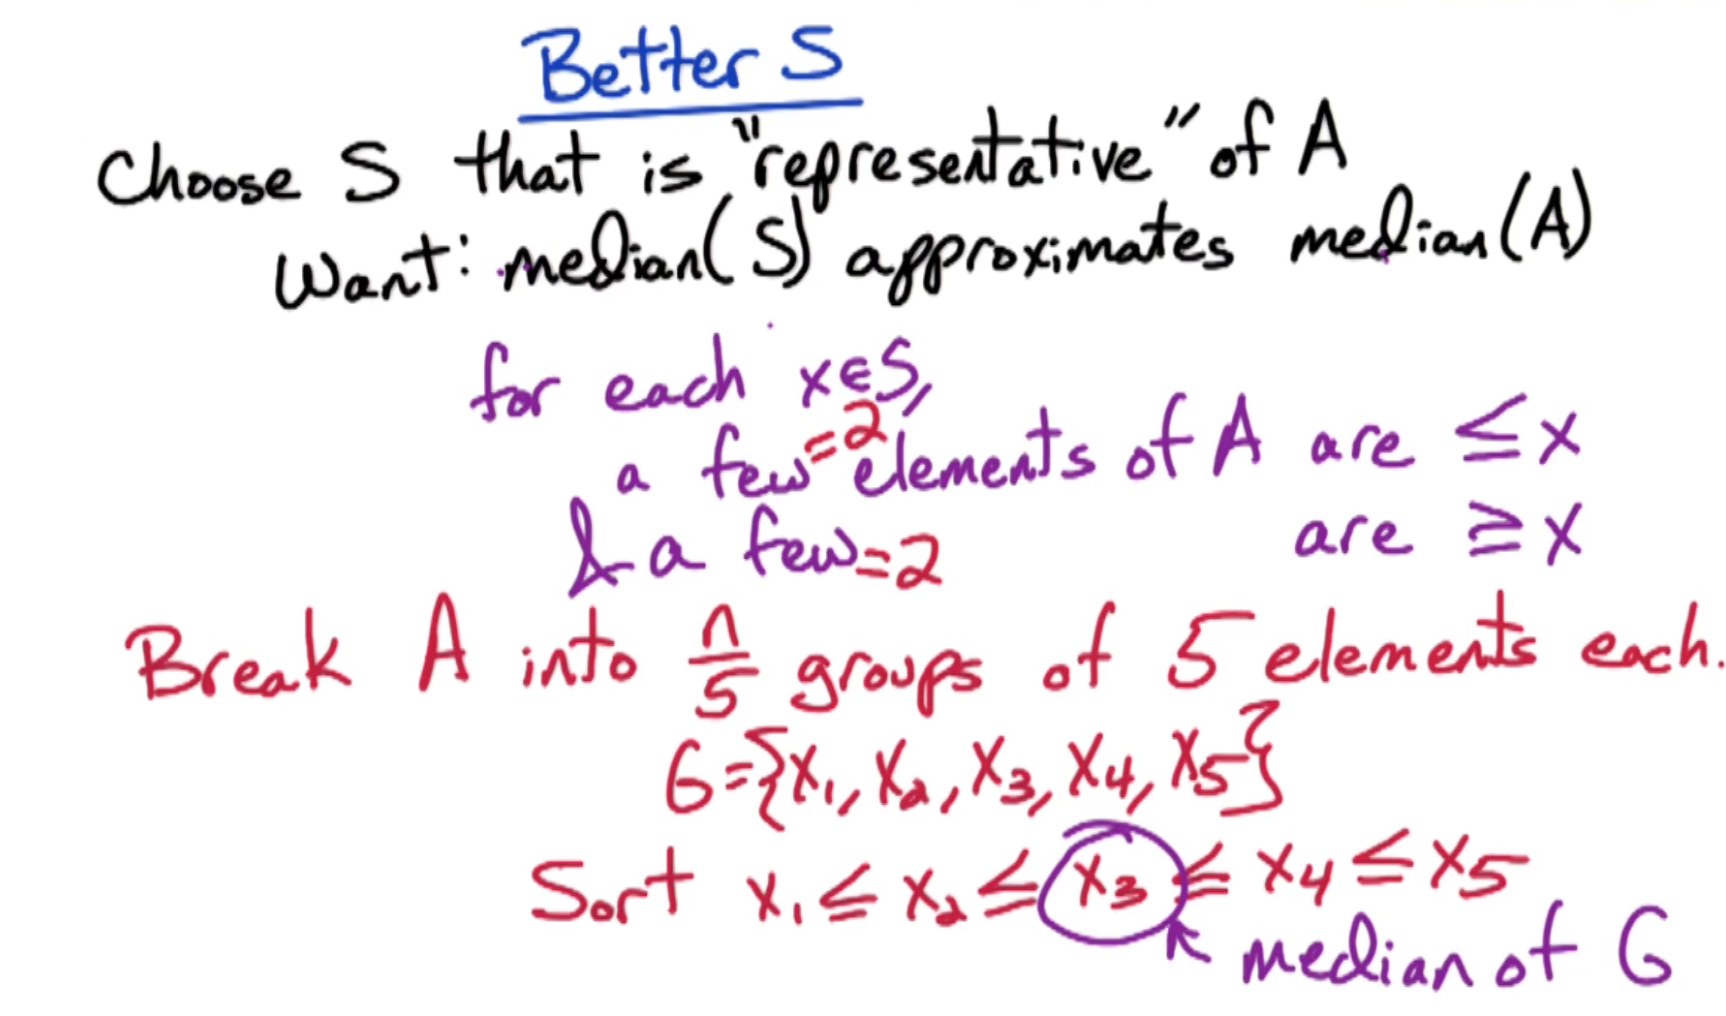 Better S
Choose S that is "representative" of A
Want: median(S) approximates median(A)
for each x∈S,
a few =2 elements of A are ≤ x
& a few =2 are ≥ x
Break A into n/5 groups of 5 elements each.
G={x₁, x₂, x₃, x₄, x₅}
Sort x₁ ≤ x₂ ≤ x₃ ≤ x₄ ≤ x₅
median of G